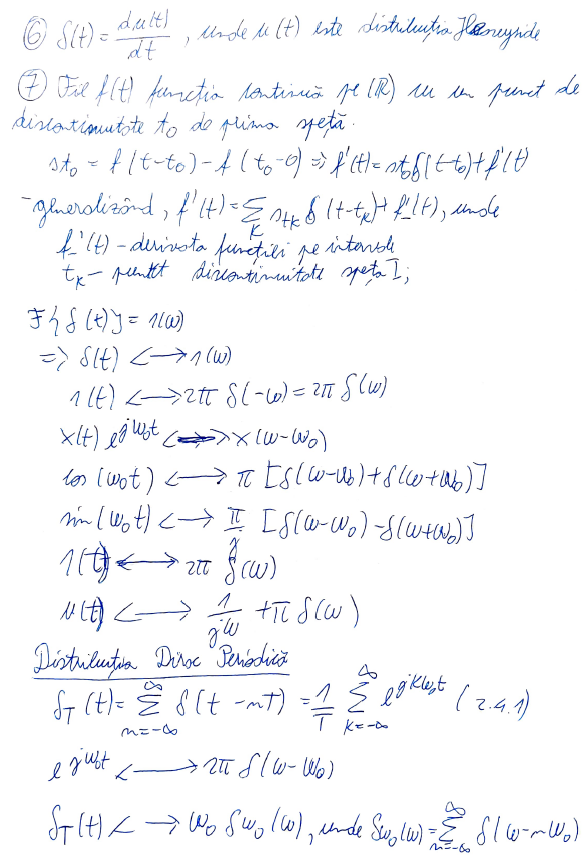 ⑥ δ(t) = du(t)/dt, unde u(t) este distribuția Heaveyside
⑦ Fie f(t) funcția continuă pe (ℝ) cu un punct de
discontinuitate t₀ de prima speță.
st₀ = f(t-t₀) - f(t₀-0) => f'(t) = st₀δ(t-t₀) + f'(t)
- generalizând, f'(t) = Σ_K st_K δ(t-t_K) + f_-'(t), unde
f_-'(t) - derivata funcției pe intervale
t_K - punctele discontinuitate speța I;
F{δ(t)} = 1(ω)
=> δ(t) ⟷ 1(ω)
1(t) ⟷ 2π δ(-ω) = 2π δ(ω)
x(t) e^{jω₀t} ⟷ X(ω-ω₀)
cos(ω₀t) ⟷ π [δ(ω-ω₀) + δ(ω+ω₀)]
sin(ω₀t) ⟷ π/j [δ(ω-ω₀) - δ(ω+ω₀)]
1(t) ⟷ 2π δ(ω)
u(t) ⟷ 1/jω + π δ(ω)
Distribuția Dirac Periodică
δ_T(t) = Σ_{n=-∞}^{∞} δ(t-nT) = 1/T Σ_{K=-∞}^{∞} e^{jKω₀t} (2.4.1)
e^{jω₀t} ⟷ 2π δ(ω-ω₀)
δ_T(t) ⟷ ω₀ δ_{ω₀}(ω), unde δ_{ω₀}(ω) = Σ_{n=-∞}^{∞} δ(ω-nω₀)